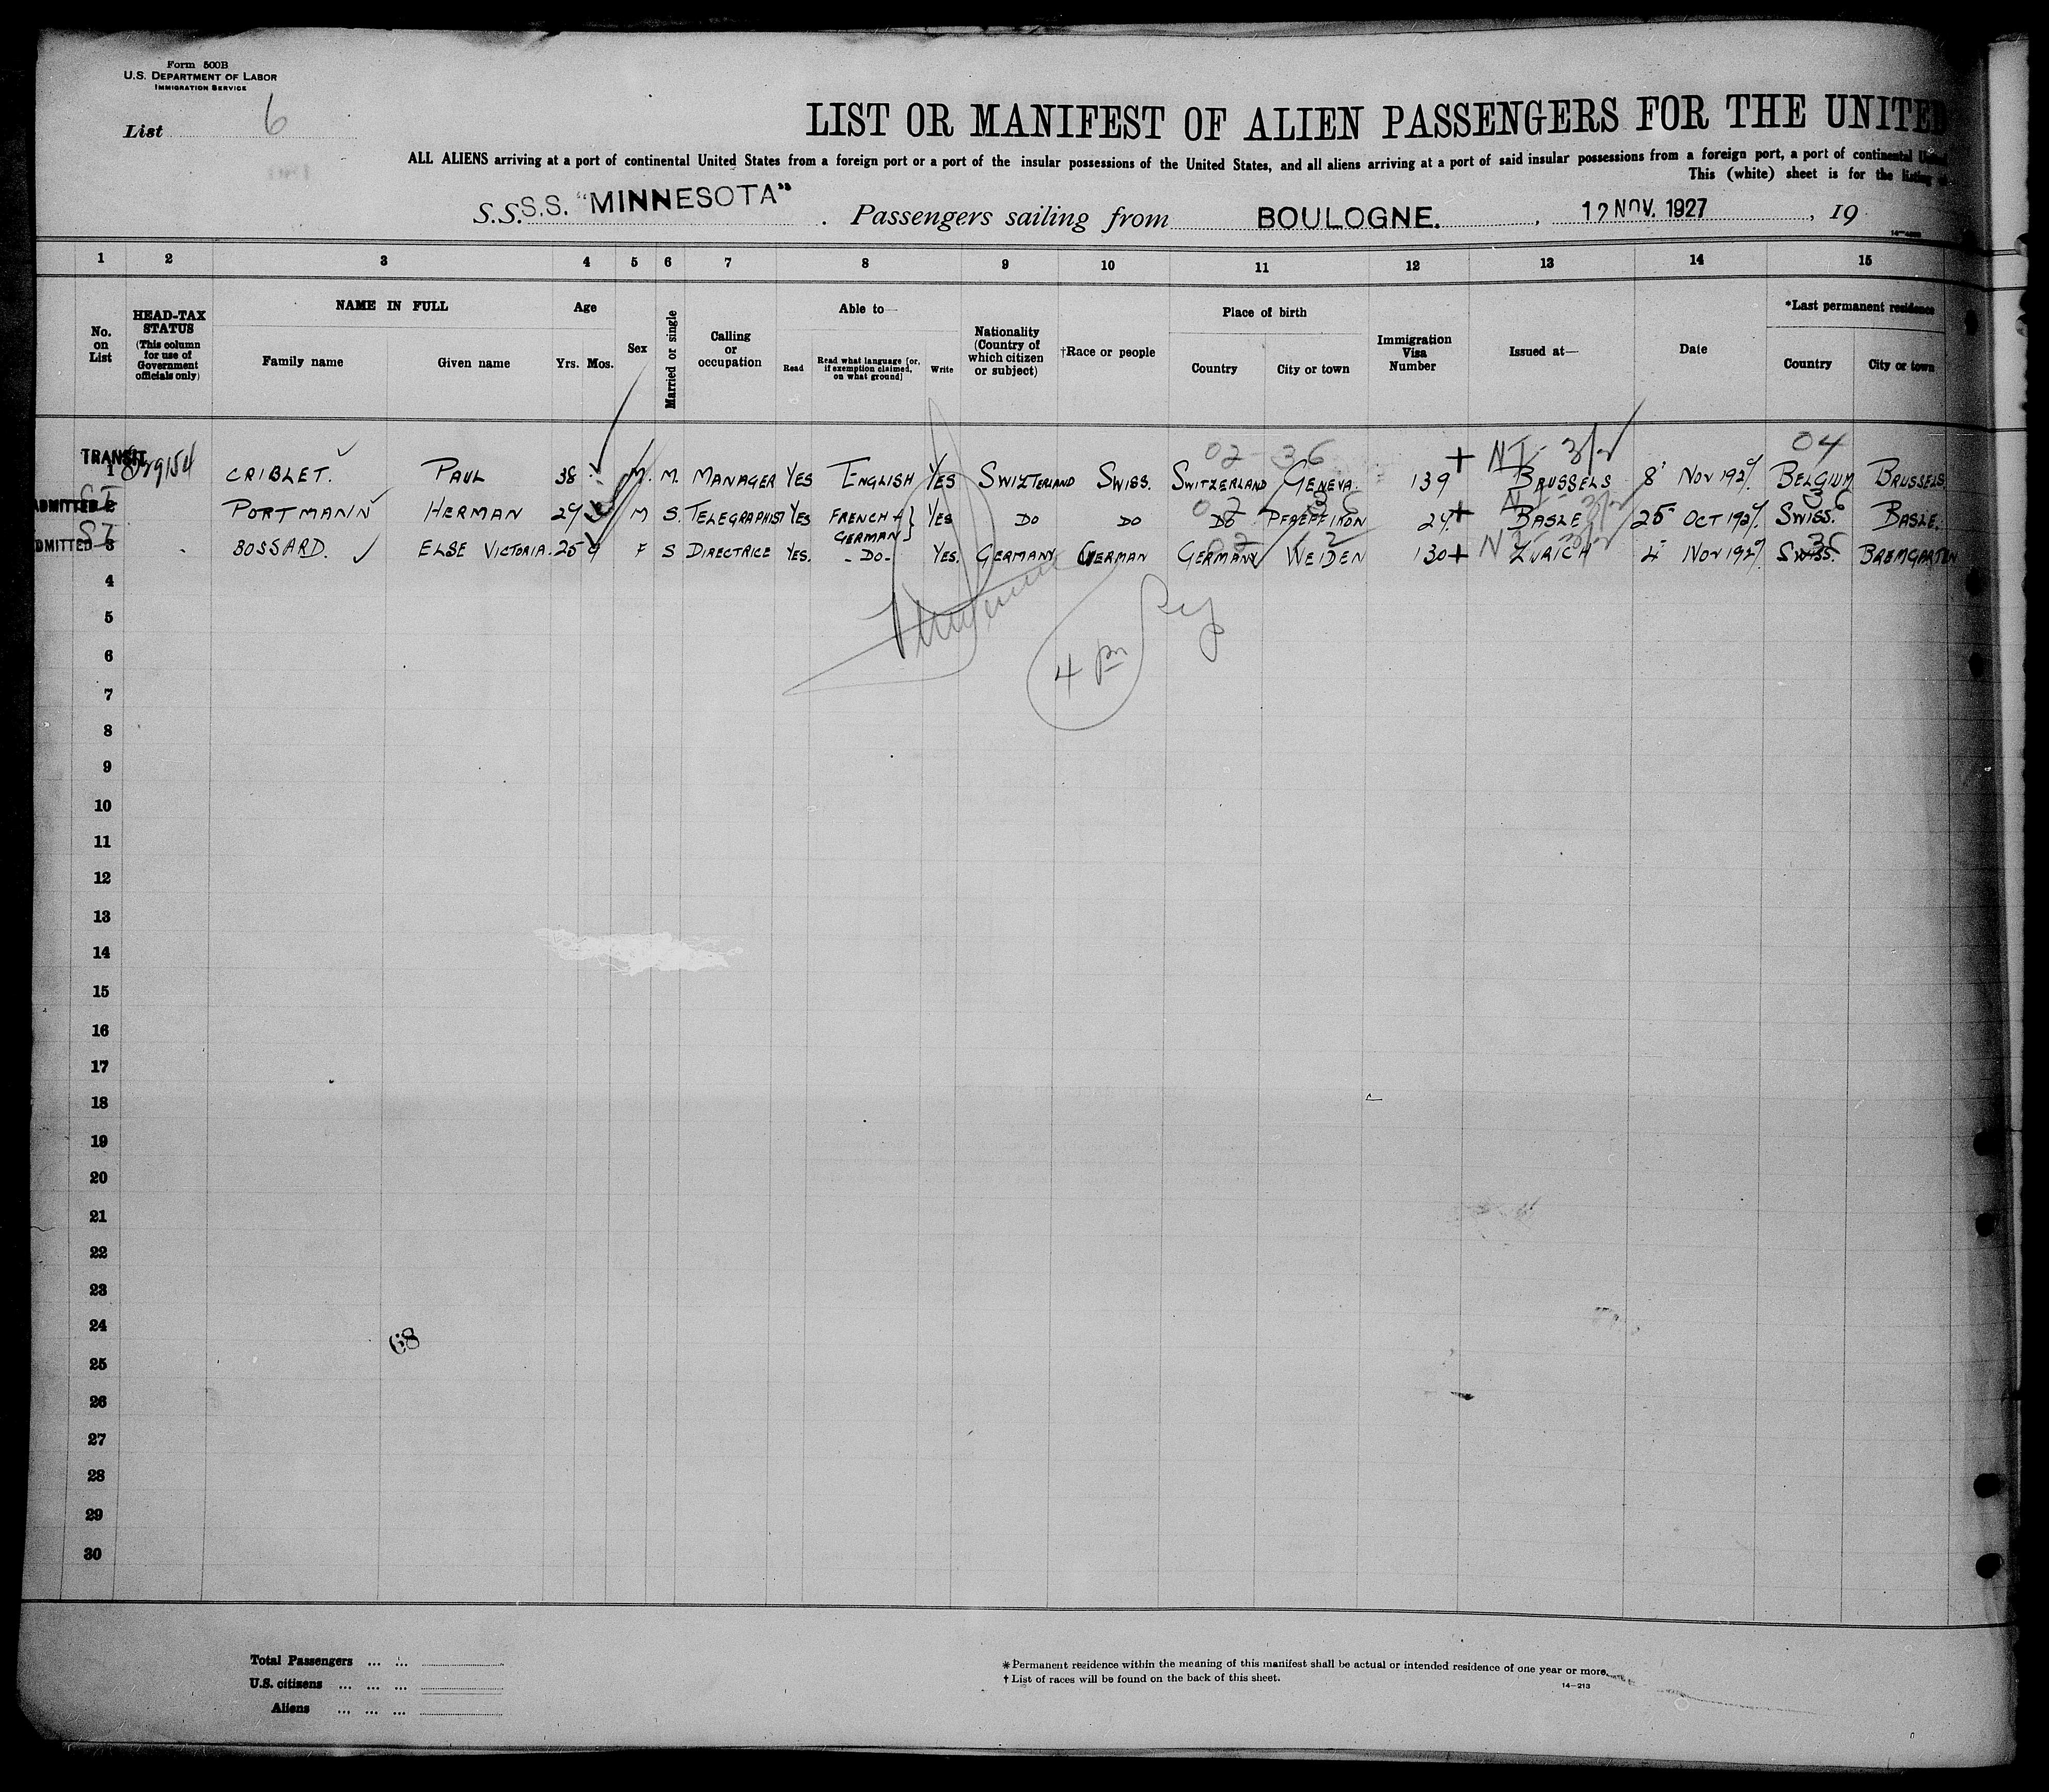 Form 500B
U.S. DEPARTMENT OF LABOR
IMMIGRATION SERVICE
List 6
LIST OR MANIFEST OF ALIEN PASSENGERS FOR THE UNITED
ALL ALIENS arriving at a port of continental United States from a foreign port or a port of the insular possessions of the United States, and all aliens arriving at a port of said insular possessions from a foreign port, a port of continental United
This (white) sheet is for the listing
S.S. S.S. "MINNESOTA" . Passengers sailing from BOULOGNE. , 12 NOV. 1927 , 19
1 2 3 4 5 6 7 8 9 10 11 12 13 14 15
No. on List
HEAD-TAX STATUS (This column for use of Government officials only)
NAME IN FULL
Family name Given name
Age
Yrs. Mos.
Sex
Married or single
Calling or occupation
Able to—
Read
Read what language [or, if exemption claimed, on what ground]
Write
Nationality (Country of which citizen or subject)
†Race or people
Place of birth
Country City or town
Immigration Visa Number
Issued at—
Date
*Last permanent residence
Country City or town
02-36 04
TRANSIT
1 CRIBLET. PAUL 38 M. M. MANAGER YES ENGLISH YES SWIZTERLAND SWISS. SWITZERLAND GENEVA. 139 BRUSSELS 8 NOV 1927. BELGIUM BRUSSELS
ADMITTED 2 PORTMANN HERMAN 29 M S. TELEGRAPHIST YES FRENCH + GERMAN } YES DO DO DO PFAEFFIKON 27 BASLE 25 OCT 1927. SWISS. BASLE.
DMITTED 3 BOSSARD. ELSE VICTORIA. 25 9 F S DIRECTRICE YES. -DO- YES. GERMANY GERMAN GERMANY WEIDEN 130 ZURICH 4 NOV 1927. SWISS. BREMGARTEN
4
5
6
4 pm
7
8
9
10
11
12
13
14
15
16
17
18
19
20
21
22
23
24
68
25
26
27
28
29
30
Total Passengers ... ...
U.S. citizens ... ... ...
Aliens ... ... ...
*Permanent residence within the meaning of this manifest shall be actual or intended residence of one year or more.
†List of races will be found on the back of this sheet.
14—213